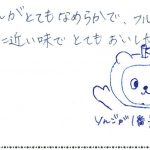 んがとてもなめらかで、フル
に近い味で とても おいし
りんごが1番